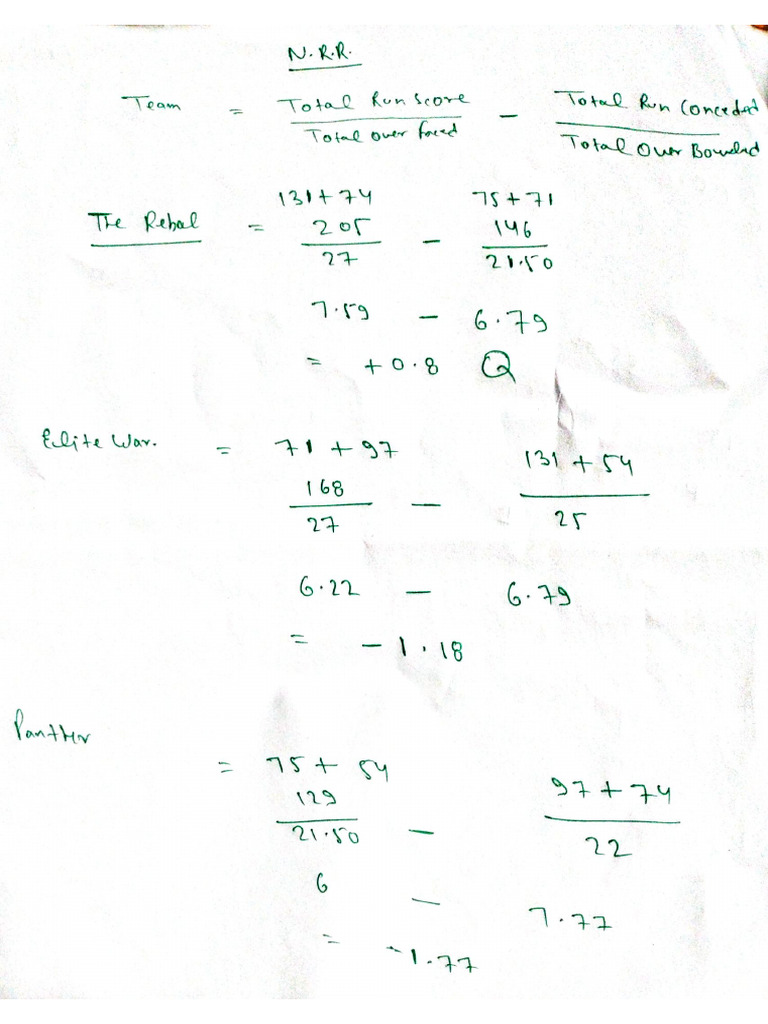 N.R.R.
Team = Total Run Score / Total over faced - Total Run Conceded / Total Over Bowled
131 + 74 75 + 71
The Rebal = 205 / 27 - 146 / 21.50
7.59 - 6.79
= +0.8 Q
Elite War. = 71 + 97 131 + 54
168 / 27 - 25
6.22 - 6.79
= -1.18
Panther
= 75 + 54 97 + 74
129 / 21.50 - 22
6 - 7.77
= -1.77